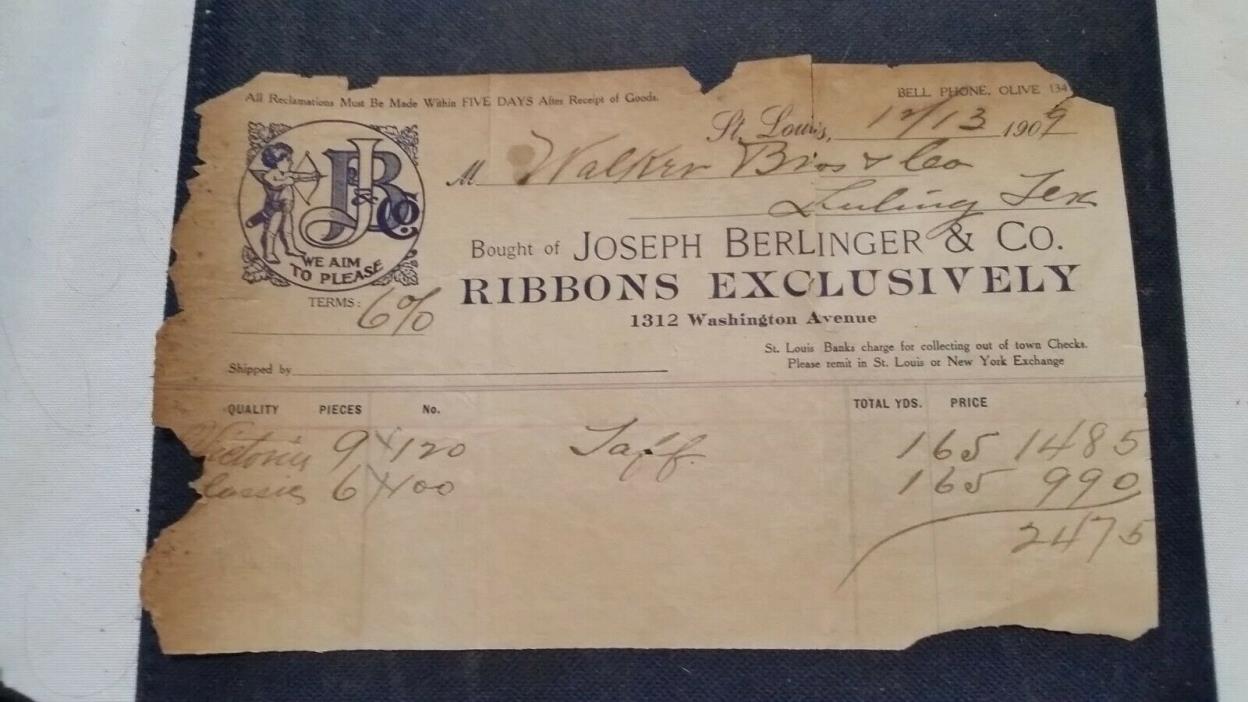 All Reclamations Must Be Made Within FIVE DAYS After Receipt of Goods.
BELL PHONE, OLIVE 134
St. Louis, 12/13 1909
M Walker Bros & Co
Luling Tex
J B & Co.
WE AIM
TO PLEASE
Bought of JOSEPH BERLINGER & CO.
RIBBONS EXCLUSIVELY
1312 Washington Avenue
TERMS: 6%
St. Louis Banks charge for collecting out of town Checks.
Please remit in St. Louis or New York Exchange
Shipped by
QUALITY PIECES No. TOTAL YDS. PRICE
Victoria 9 120 Taff. 165 1485
6 165 990
2475